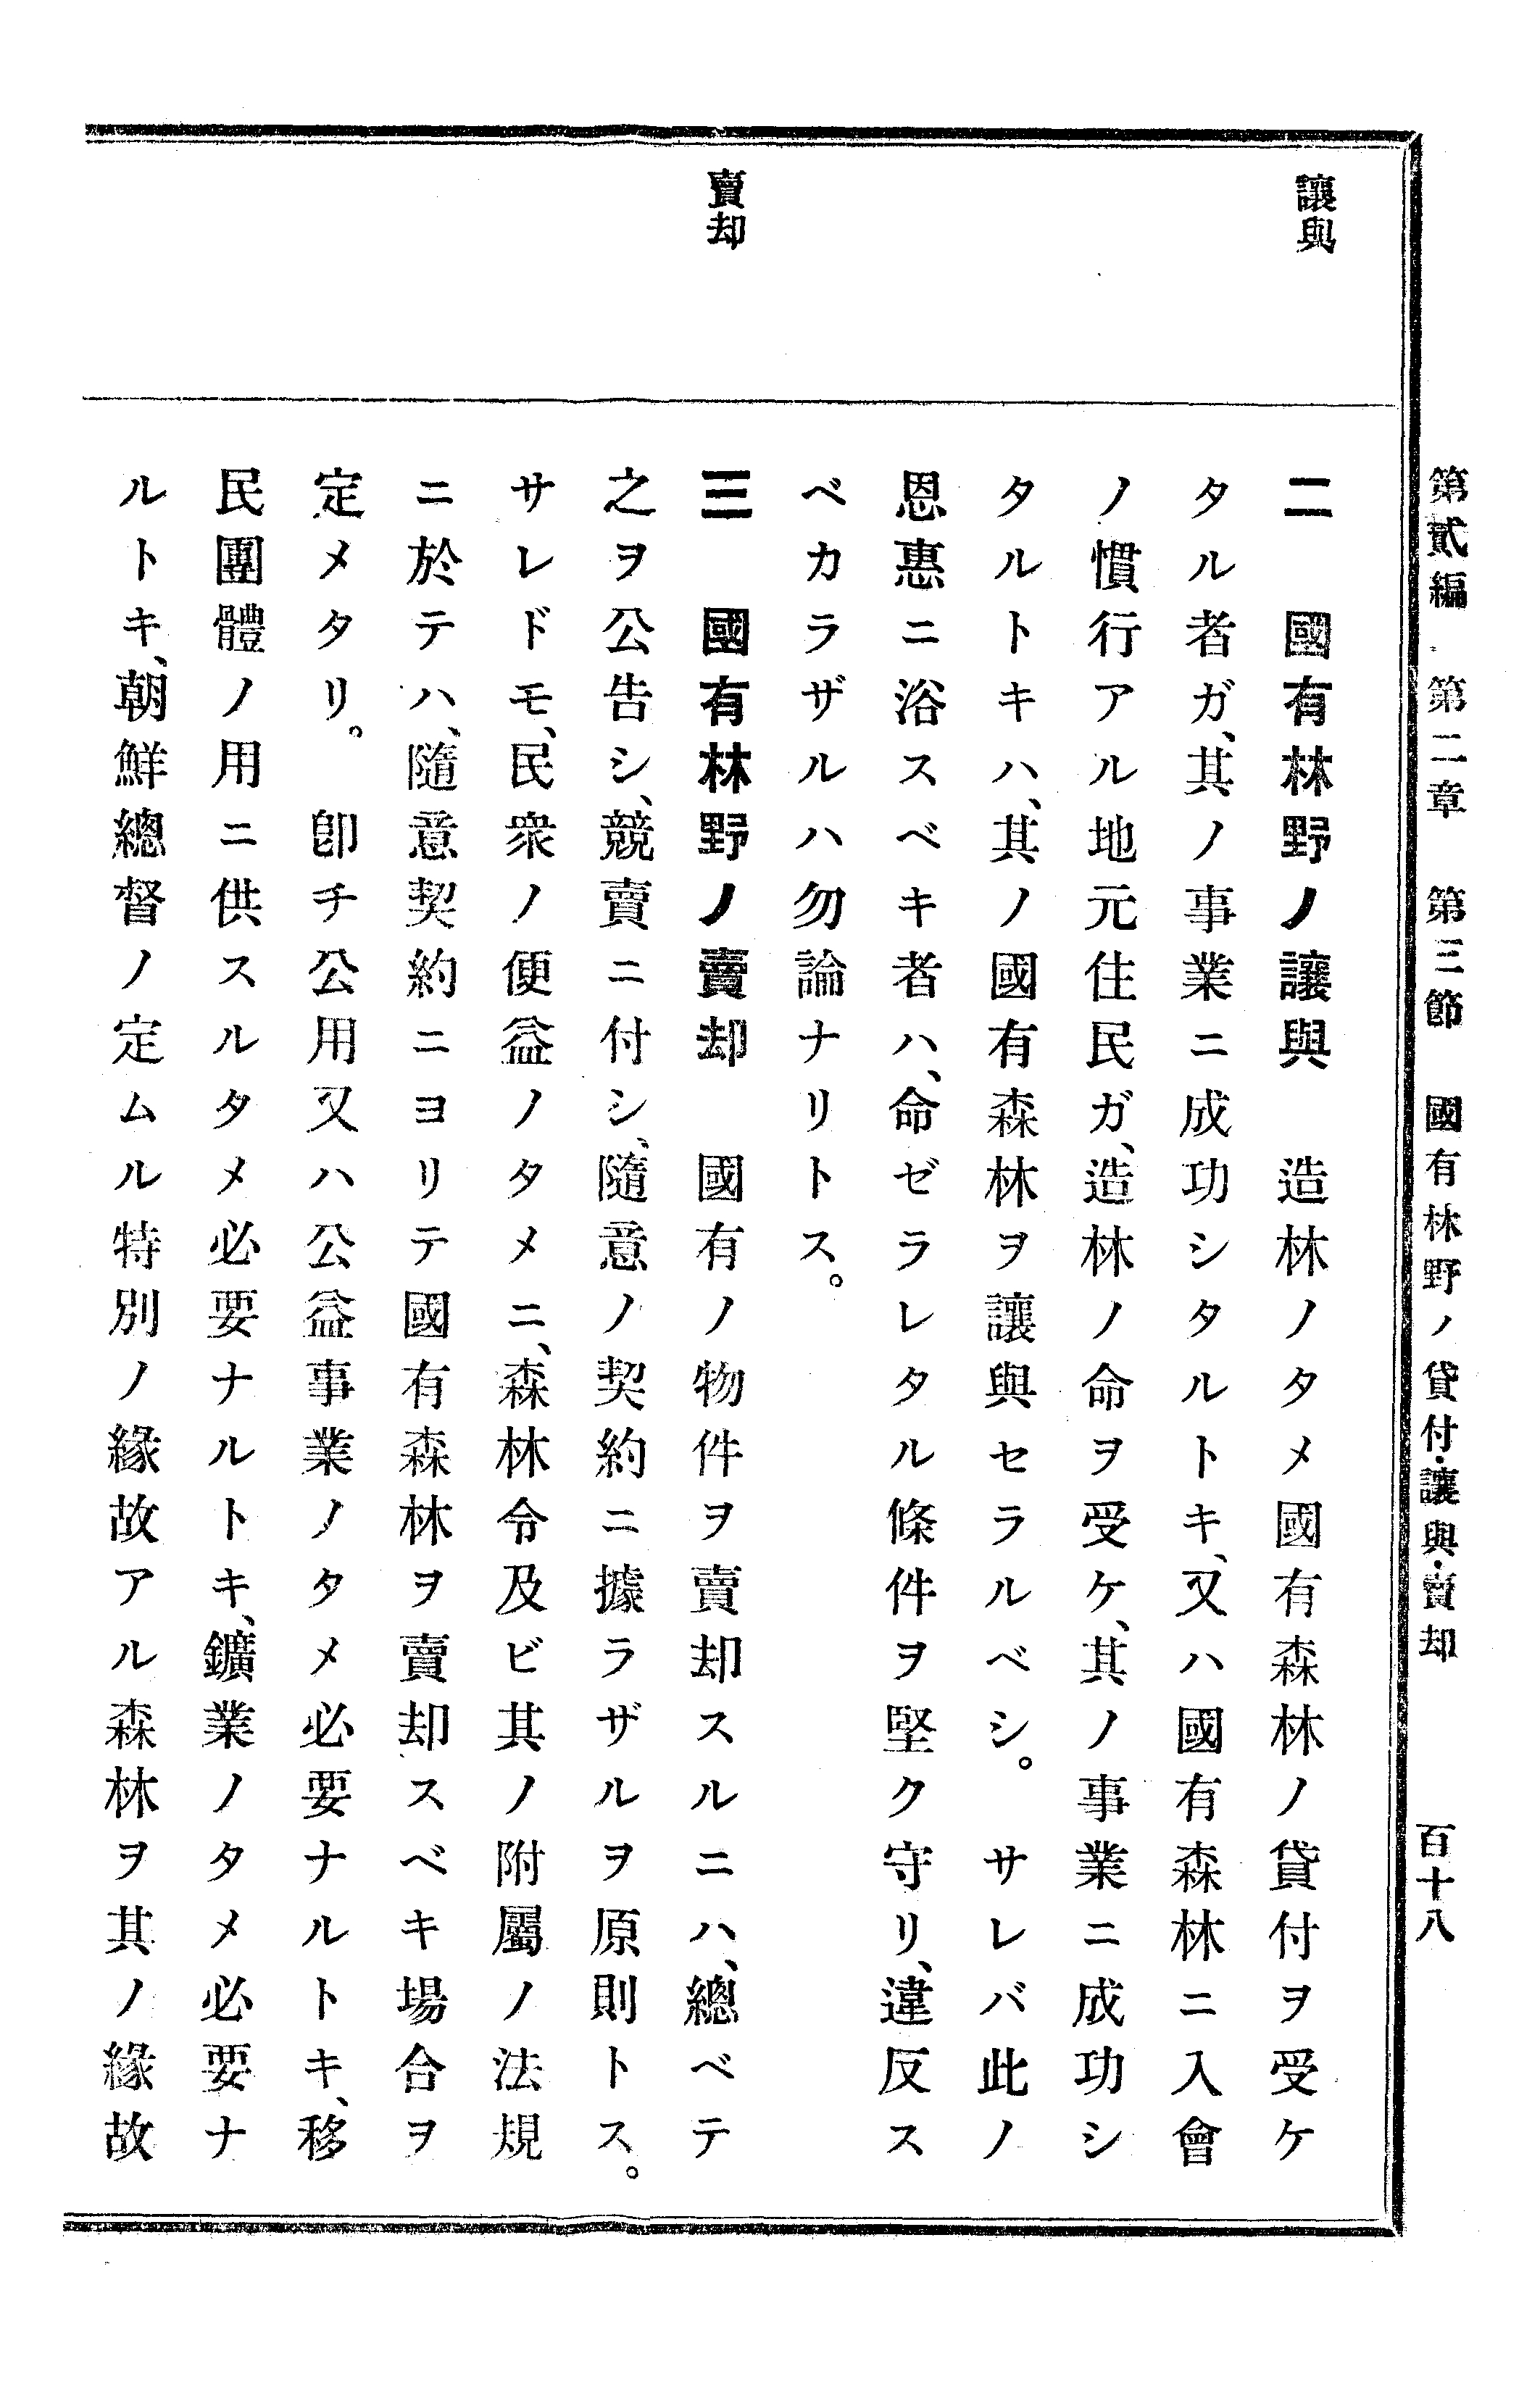 第貳編 第二章 第三節 國有林野ノ貸付・讓與・賣却 百十八
讓與
二 國有林野ノ讓與 造林ノタメ國有森林ノ貸付ヲ受ケ
タル者ガ、其ノ事業ニ成功シタルトキ、又ハ國有森林ニ入會
ノ慣行アル地元住民ガ、造林ノ命ヲ受ケ、其ノ事業ニ成功シ
タルトキハ、其ノ國有森林ヲ讓與セラルベシ。 サレバ此ノ
恩惠ニ浴スベキ者ハ、命ゼラレタル條件ヲ堅ク守リ、違反ス
ベカラザルハ勿論ナリトス。
賣却
三 國有林野ノ賣却 國有ノ物件ヲ賣却スルニハ、總ベテ
之ヲ公告シ、競賣ニ付シ、隨意ノ契約ニ據ラザルヲ原則トス。
サレドモ、民衆ノ便益ノタメニ、森林令及ビ其ノ附屬ノ法規
ニ於テハ、隨意契約ニヨリテ國有森林ヲ賣却スベキ場合ヲ
定メタリ。 卽チ公用又ハ公益事業ノタメ必要ナルトキ、移
民團體ノ用ニ供スルタメ必要ナルトキ、鑛業ノタメ必要ナ
ルトキ、朝鮮總督ノ定ムル特別ノ緣故アル森林ヲ其ノ緣故